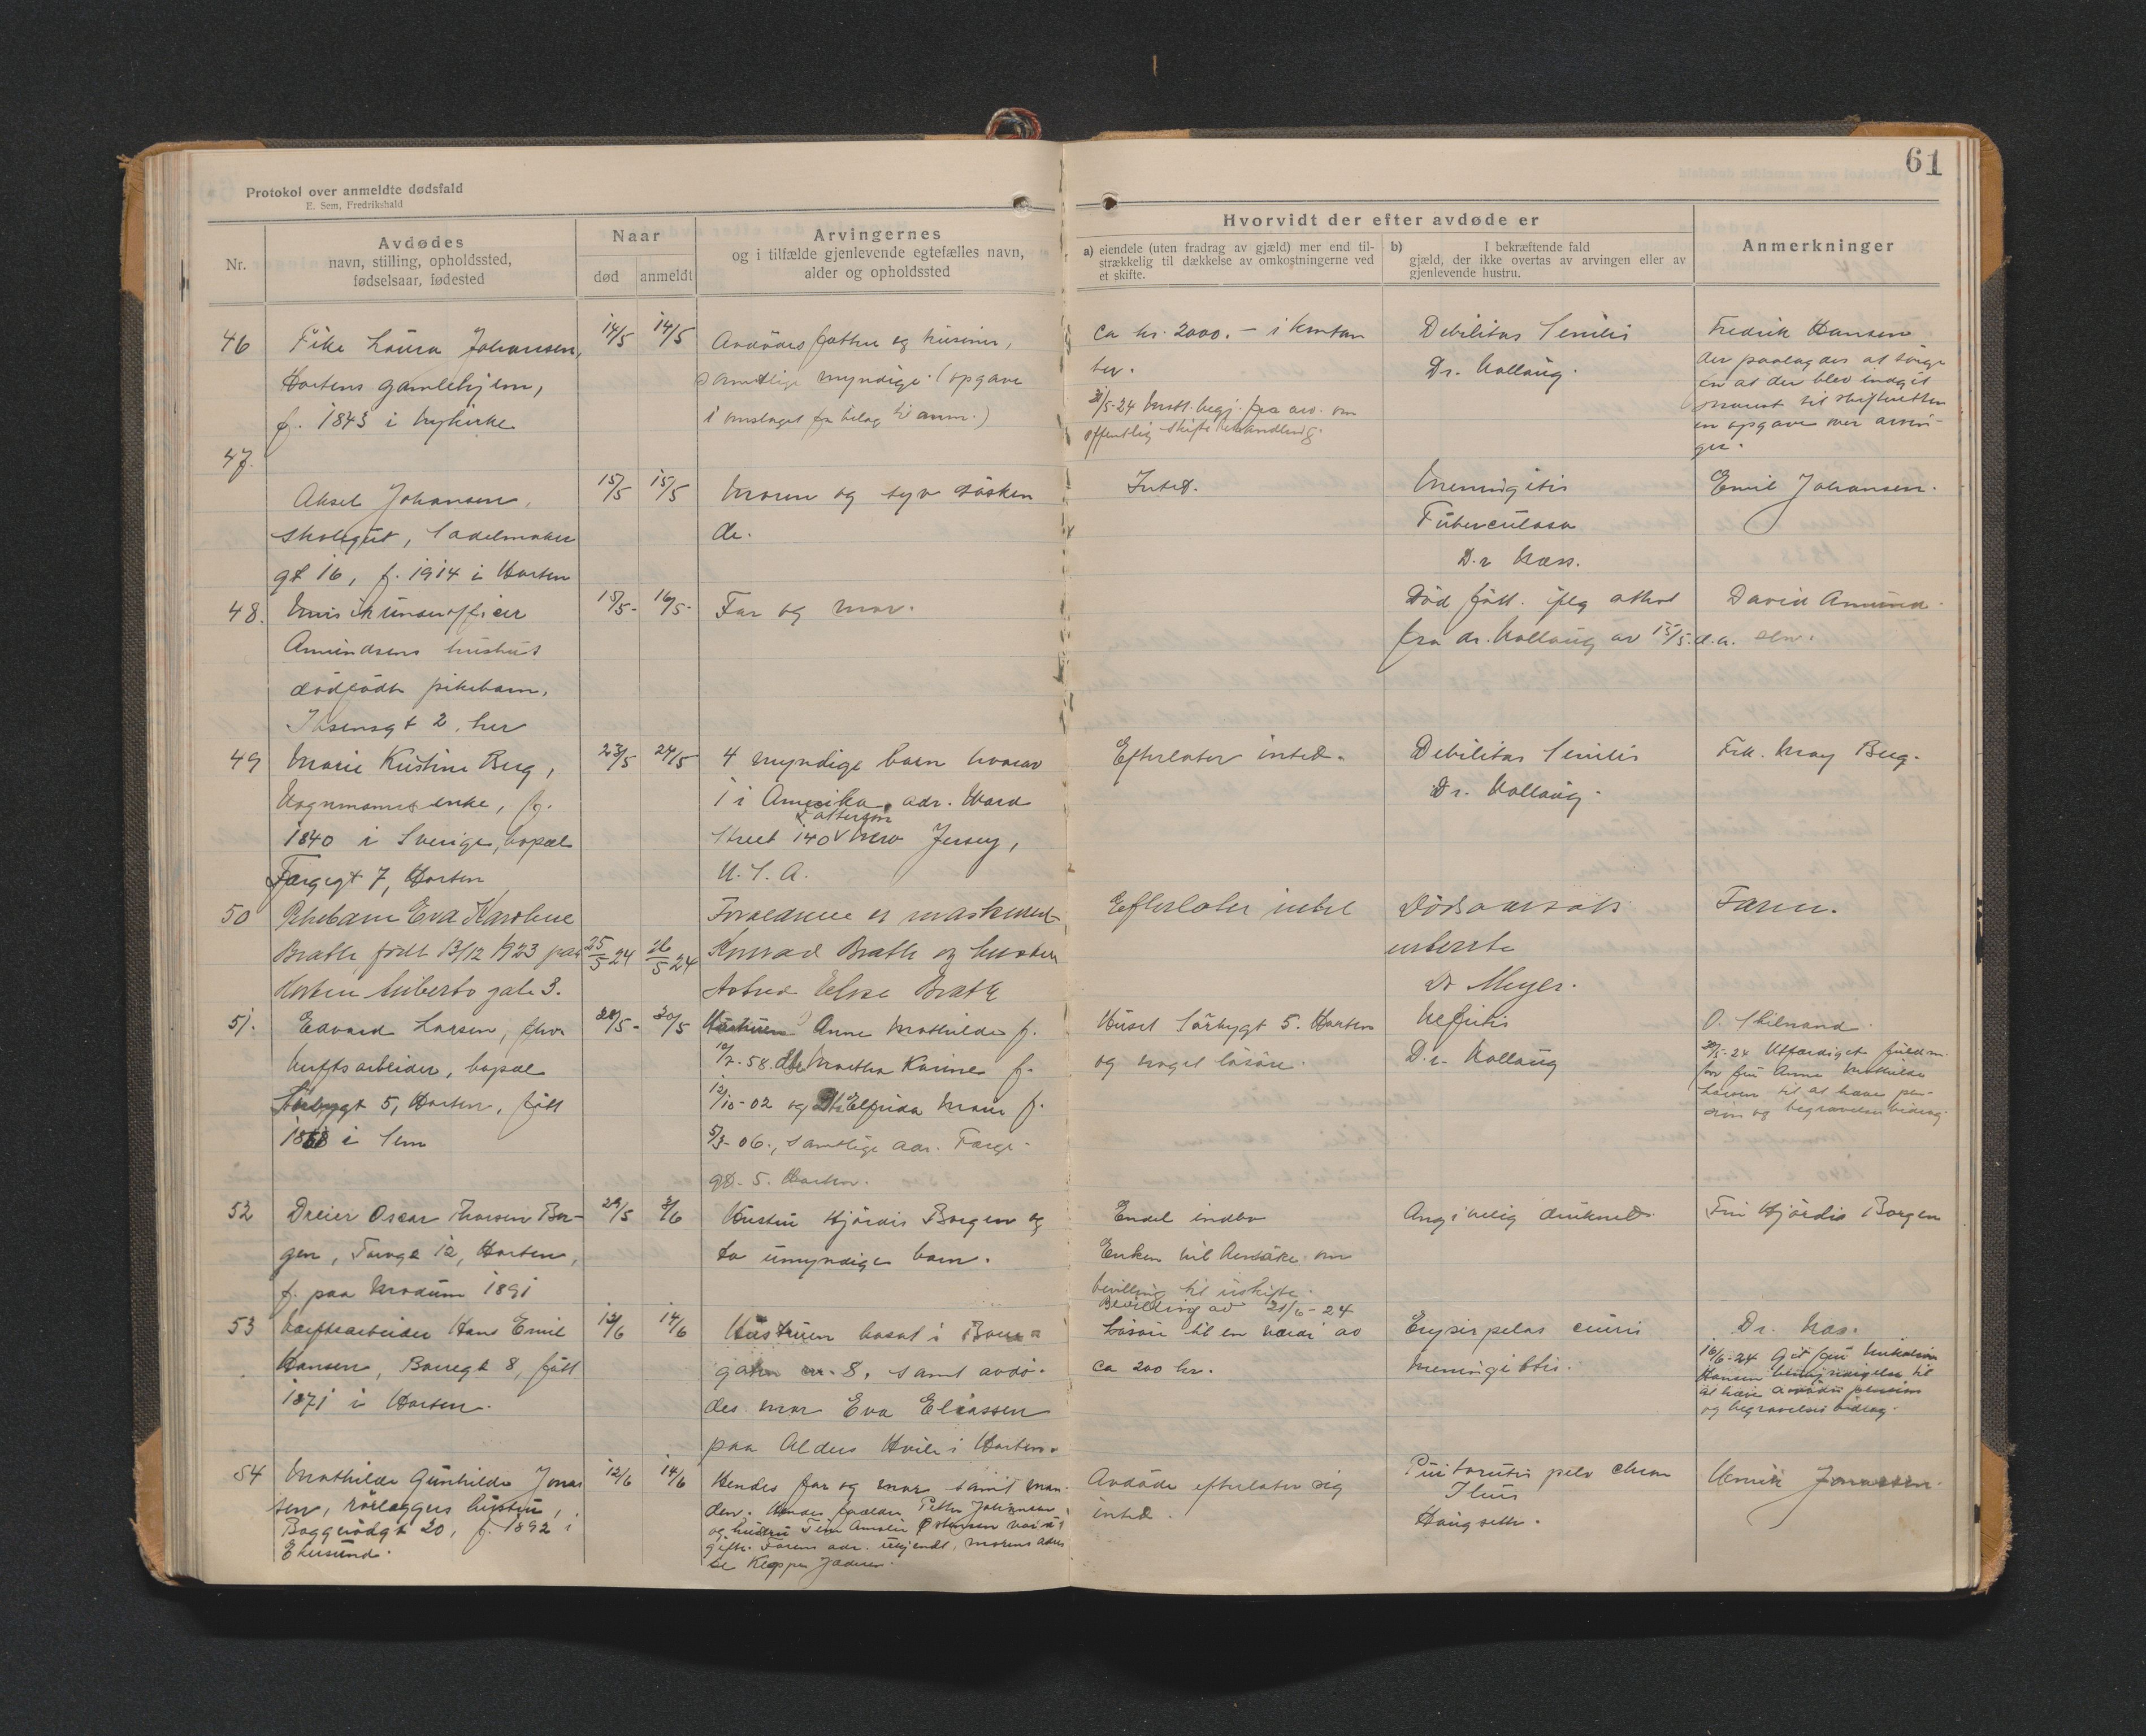 61
Protokol over anmeldte dødsfald
E. Sem, Fredrikshald
Nr.
Avdødes
navn, stilling, opholdssted,
fødselsaar, fødested
Naar
død
anmeldt
Arvingernes
og i tilfælde gjenlevende egtefælles navn,
alder og opholdssted
Hvorvidt der efter avdøde er
a) eiendele (uten fradrag av gjæld) mer end til-
strækkelig til dækkelse av omkostningerne ved
et skifte.
b) I bekræftende fald
gjæld, der ikke overtas av arvingen eller av
gjenlevende hustru.
Anmerkninger
46
Laura Johansen,
Hortens gamlehjem,
f. 1843 i Nykirke
14/5
14/5
Avdødes fættre og kusiner,
samtlige myndige (opgave
i omslaget for bilag til anm.)
ca kr. 2000.- i kontan
ter.
offentlig skiftebehandling.
Debilitas Senilis
Dr. Kollaug.
Fredrik Hansen
der paalagdes at sørge
en opgave over arvin-
ger.
47.
Aksel Johansen,
skolegut, Sadelmaker
gt 16, f. 1914 i Horten
15/5
15/5
Moren og syv søsken
de.
Intet.
Meningitis
Tuberculosa
D.r Næss.
Emil Johansen.
48.
Musikunderofficer
Amundsens hustrus
dødfødte pikebarn,
Ibsensgt 2, her
15/5-
16/5-
Far og mor.
Død født. ifølg attest
fra dr. Kollaug av 15/5. d.a.
David Amund
sen.
49
Marie Kristine Berg,
Vognmandsenke, f.
1840 i Sverige, bopæl
Færgegt 7, Horten
23/5
24/5
4 myndige barn hvorav
1 i Amerika, adr. Ward
Patterson
Street 140 New Jersey,
U.S.A.
Efterlater intet.
Debilitas Senilis
Dr. Kollaug.
Frk. May Berg.
50
Pikebarn Eva Karoline
Brathe født 13/12 1923 paa
Horten gate 3.
25/5 24
26/5 24
Forældrene er maskinist
Konrad Brathe og hustru
Astrid Brathe
Efterlater intet
Dødsaarsak
uberste
Dr Meyer.
Faren.
51.
Edvard Larsen, fhv.
verftsarbeider, bopæl
Sørbygt 5, Horten, født
i Sem
28/5-
30/5
Hustruen Anne Mathilde f.
10/7-58. Martha Karine f.
12/10-02 og Elfrida Marie f.
5/3-06., samtlige adr. Færge-
gt. 5. Horten.
Huset Sørbygt 5. Horten
og noget løsøre.
Nefritis
D.r. Kollaug
30/5-24 Utfærdiget fuldm.
for fru Anne Mathilde
Larsen til at hæve pen-
sion og begravelsesbidrag.
52
Dreier Oscar Thorsen Bor-
gen, 12, Horten,
f. paa Modum 1891
29/5
3/6
Hustru Hjördis Borgen og
to umyndige barn.
Endel indbo
Enken vil ansøke om
bevilling til uskifte.
Bevilling av 21/6-24
Angivelig druknet.
Fru Hjördis Borgen
53
Verftsarbeider Hans Emil
Hansen, 8, født
1871 i Horten.
12/6
14/6
Hustruen bosat i
gaten nr. 8, samt avdø-
des mor Eva Eliassen
paa Alders Hvile i Horten.
Løsøre til en værdi av
ca 200 kr.
Erysipelas cruris
Meningittis.
Dr. Næss.
16/6-24 Git fru
Hansen bemyndigelse til
at hæve avdødes pension
og begravelsesbidrag.
54
Mathilde Gunhilde Jonas
sen, rørlæggers hustru,
20, f. 1892 i
Ekersund.
12/6
14/6
Hendes far og mor samt man-
den. Hendes forældre Petter Johannsen
og hustru
gifte. Farens adr. ukjendt, morens adres
se Klepp Jæderen.
Avdøde efterlater sig
intet.
Ileus
Haugseth.
Henrik Jonassen.